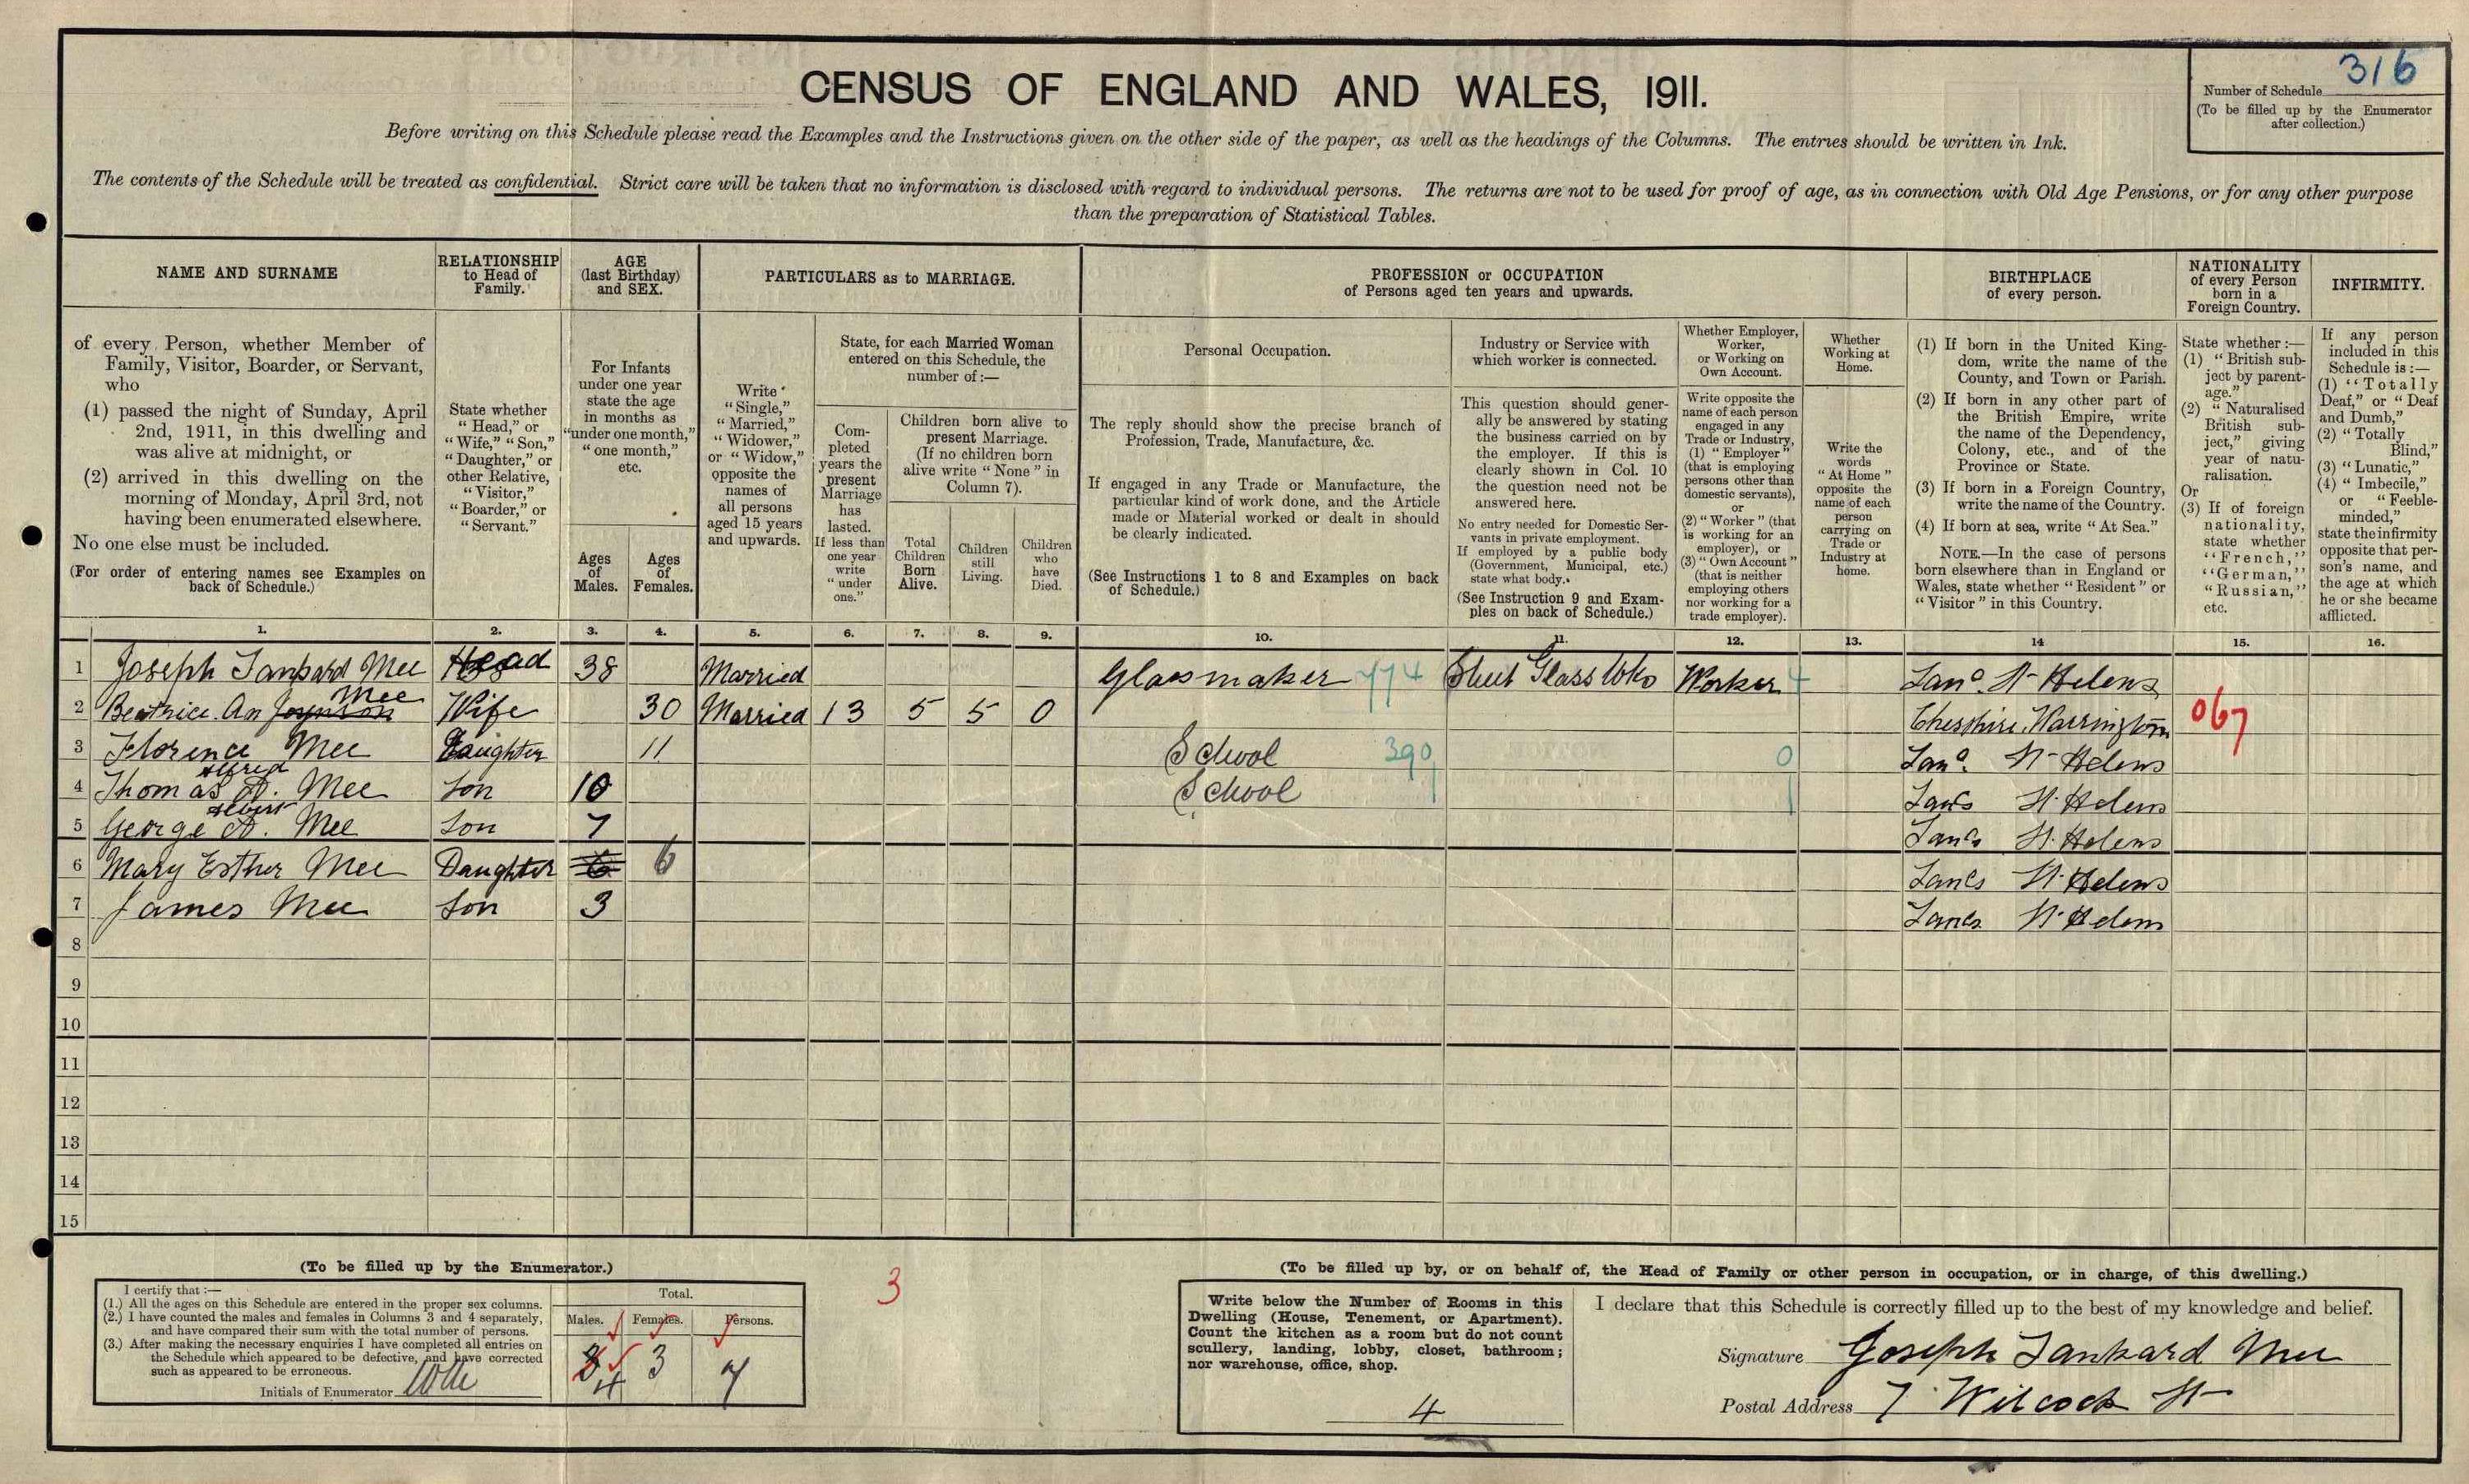 316
CENSUS OF ENGLAND AND WALES, 1911.
Number of Schedule
(To be filled up by the Enumerator after collection.)
Before writing on this Schedule please read the Examples and the Instructions given on the other side of the paper, as well as the headings of the Columns. The entries should be written in Ink.
The contents of the Schedule will be treated as confidential. Strict care will be taken that no information is disclosed with regard to individual persons. The returns are not to be used for proof of age, as in connection with Old Age Pensions, or for any other purpose
than the preparation of Statistical Tables.
NAME AND SURNAME
of every Person, whether Member of
Family, Visitor, Boarder, or Servant,
who
(1) passed the night of Sunday, April
2nd, 1911, in this dwelling and
was alive at midnight, or
(2) arrived in this dwelling on the
morning of Monday, April 3rd, not
having been enumerated elsewhere.
No one else must be included.
(For order of entering names see Examples on
back of Schedule.)
RELATIONSHIP
to Head of
Family.
State whether
"Head," or
"Wife," "Son,"
"Daughter," or
other Relative,
"Visitor,"
"Boarder," or
"Servant."
AGE
(last Birthday)
and SEX.
For Infants
under one year
state the age
in months as
"under one month,"
"one month,"
etc.
Ages
of
Males.
Ages
of
Females.
PARTICULARS as to MARRIAGE.
Write
"Single,"
"Married,"
"Widower,"
or "Widow,"
opposite the
names of
all persons
aged 15 years
and upwards.
State, for each Married Woman
entered on this Schedule, the
number of:—
Com-
pleted
years the
present
Marriage
has
lasted.
If less than
one year
write
"under
one."
Children born alive to
present Marriage.
(If no children born
alive write "None" in
Column 7).
Total
Children
Born
Alive.
Children
still
Living.
Children
who
have
Died.
PROFESSION or OCCUPATION
of Persons aged ten years and upwards.
Personal Occupation.
The reply should show the precise branch of
Profession, Trade, Manufacture, &c.
If engaged in any Trade or Manufacture, the
particular kind of work done, and the Article
made or Material worked or dealt in should
be clearly indicated.
(See Instructions 1 to 8 and Examples on back
of Schedule.)
Industry or Service with
which worker is connected.
This question should gener-
ally be answered by stating
the business carried on by
the employer. If this is
clearly shown in Col. 10
the question need not be
answered here.
No entry needed for Domestic Ser-
vants in private employment.
If employed by a public body
(Government, Municipal, etc.)
state what body.
(See Instruction 9 and Exam-
ples on back of Schedule.)
Whether Employer,
Worker,
or Working on
Own Account.
Write opposite the
name of each person
engaged in any
Trade or Industry,
(1) "Employer"
(that is employing
persons other than
domestic servants),
or
(2) "Worker" (that
is working for an
employer), or
(3) "Own Account"
(that is neither
employing others
nor working for a
trade employer).
Whether
Working at
Home.
Write the
words
"At Home"
opposite the
name of each
person
carrying on
Trade or
Industry at
home.
BIRTHPLACE
of every person.
(1) If born in the United King-
dom, write the name of the
County, and Town or Parish.
(2) If born in any other part of
the British Empire, write
the name of the Dependency,
Colony, etc., and of the
Province or State.
(3) If born in a Foreign Country,
write the name of the Country.
(4) If born at sea, write "At Sea."
NOTE.—In the case of persons
born elsewhere than in England or
Wales, state whether "Resident" or
"Visitor" in this Country.
NATIONALITY
of every Person
born in a
Foreign Country.
State whether:—
(1) "British sub-
ject by parent-
age."
(2) "Naturalised
British sub-
ject," giving
year of natu-
ralisation.
Or
(3) If of foreign
nationality,
state whether
"French,"
"German,"
"Russian,"
etc.
INFIRMITY.
If any person
included in this
Schedule is:—
(1) "Totally
Deaf," or "Deaf
and Dumb,"
(2) "Totally
Blind,"
(3) "Lunatic,"
(4) "Imbecile,"
or "Feeble-
minded,"
state the infirmity
opposite that per-
son's name, and
the age at which
he or she became
afflicted.
1. 2. 3. 4. 5. 6. 7. 8. 9. 10. 11. 12. 13. 14 15. 16.
1 Joseph Tankard Mee Head 38 Married Glassmaker 774 Sheet Glass Wks Worker 4 Lanc. St Helens
2 Beatrice An Mee Wife 30 Married 13 5 5 0 Chesshire. Warrington 067
3 Florence Mee Daughter 11 School 390 0 Lanc. St Helens
Alfred
4 Thomas A. Mee Son 10 School Lancs St. Helens
Albert
5 George A. Mee Son 7 Lancs St. Helens
6 Mary Esther Mee Daughter 6 6 Lancs St. Helens
7 James Mee Son 3 Lancs St. Helens
8
9
10
11
12
13
14
15
(To be filled up by the Enumerator.)
I certify that:—
(1.) All the ages on this Schedule are entered in the proper sex columns.
(2.) I have counted the males and females in Columns 3 and 4 separately,
and have compared their sum with the total number of persons.
(3.) After making the necessary enquiries I have completed all entries on
the Schedule which appeared to be defective, and have corrected
such as appeared to be erroneous.
Initials of Enumerator
Total.
Males. Females. Persons.
4 3 7
3
(To be filled up by, or on behalf of, the Head of Family or other person in occupation, or in charge, of this dwelling.)
Write below the Number of Rooms in this
Dwelling (House, Tenement, or Apartment).
Count the kitchen as a room but do not count
scullery, landing, lobby, closet, bathroom;
nor warehouse, office, shop.
4
I declare that this Schedule is correctly filled up to the best of my knowledge and belief.
Signature Joseph Tankard Mee
Postal Address 7 Wilcock St